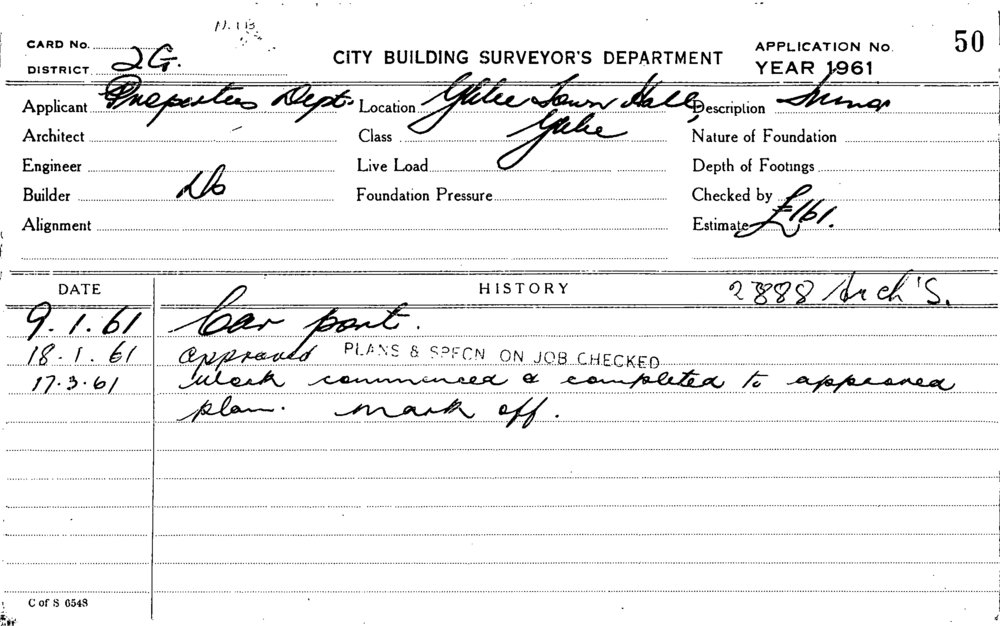 CARD No.
CITY BUILDING SURVEYOR'S DEPARTMENT
APPLICATION No. 50
DISTRICT 2G.
YEAR 1961
Applicant Properties Dept. Location Glebe Town Hall, Description Minor
Architect Class Glebe Nature of Foundation
Engineer Live Load Depth of Footings
Builder Do Foundation Pressure Checked by
Alignment Estimate £161.
DATE HISTORY 2888 Arch'S.
9.1.61 Car port.
18.1.61 approved PLANS & SPECN ON JOB CHECKED
17.3.61 Work commenced & completed to approved
plan. mark off.
C of S 6548